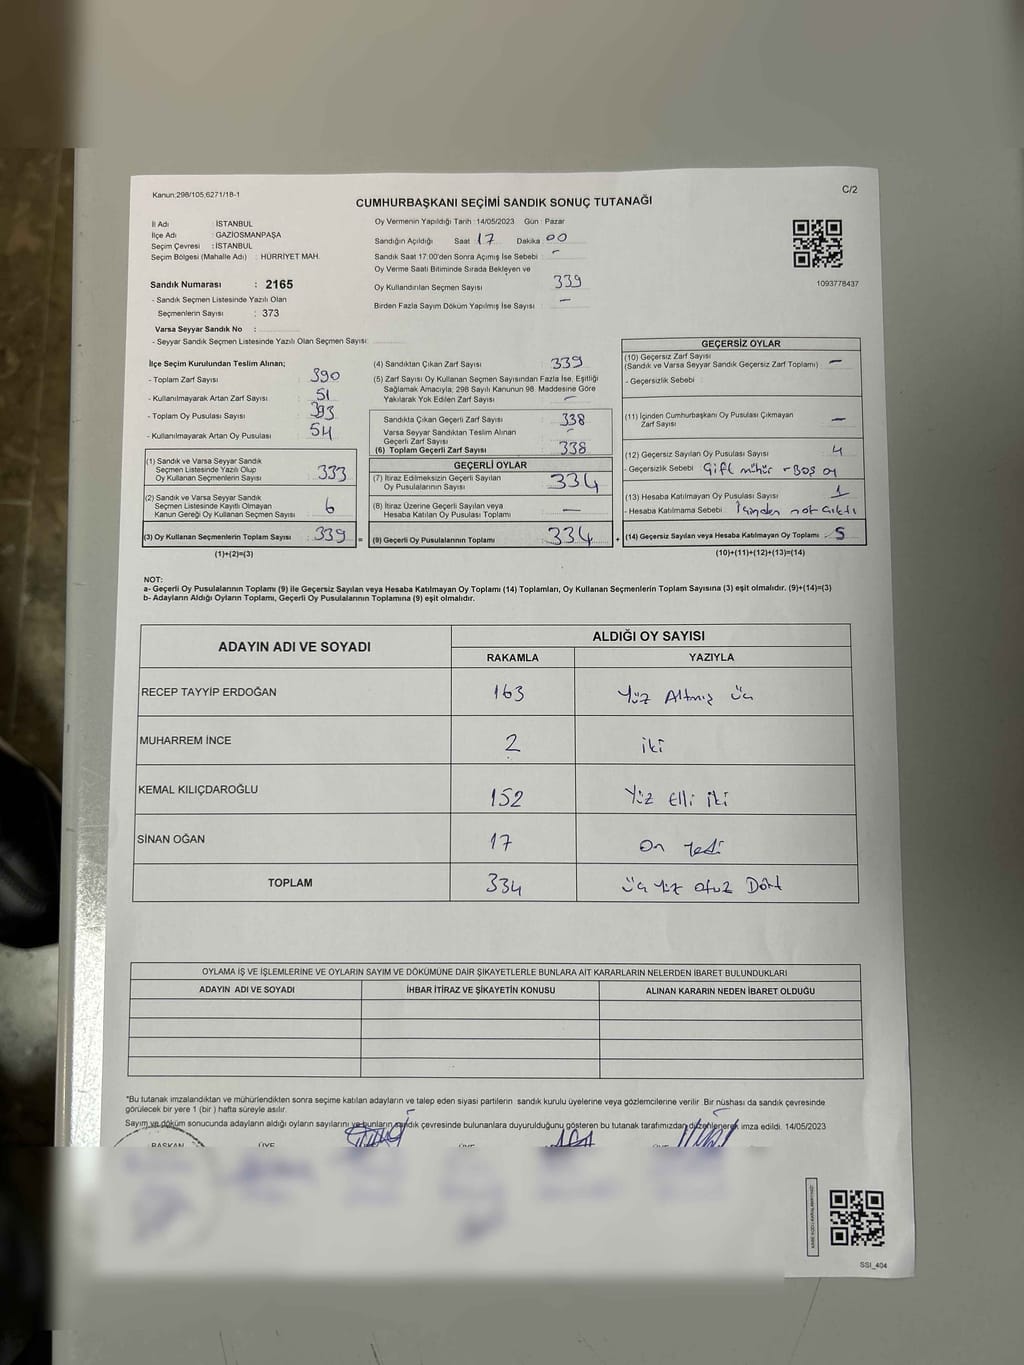 Kanun:298/105,6271/18-1
C/2
CUMHURBAŞKANI SEÇİMİ SANDIK SONUÇ TUTANAĞI
İl Adı : İSTANBUL
İlçe Adı : GAZİOSMANPAŞA
Seçim Çevresi : İSTANBUL
Seçim Bölgesi (Mahalle Adı) : HÜRRİYET MAH.
Sandık Numarası : 2165
- Sandık Seçmen Listesinde Yazılı Olan
Seçmenlerin Sayısı : 373
Varsa Seyyar Sandık No :
- Seyyar Sandık Seçmen Listesinde Yazılı Olan Seçmen Sayısı:
Oy Vermenin Yapıldığı Tarih : 14/05/2023 Gün : Pazar
Sandığın Açıldığı Saat : 17 Dakika : 00
Sandık Saat 17.00'den Sonra Açımış İse Sebebi : -
Oy Verme Saati Bitiminde Sırada Bekleyen ve
Oy Kullandırılan Seçmen Sayısı : 339
Birden Fazla Sayım Döküm Yapılmış İse Sayısı : -
1093778437
İlçe Seçim Kurulundan Teslim Alınan;
- Toplam Zarf Sayısı : 390
- Kullanılmayarak Artan Zarf Sayısı : 51
- Toplam Oy Pusulası Sayısı : 393
- Kullanılmayarak Artan Oy Pusulası : 54
(1) Sandık ve Varsa Seyyar Sandık
Seçmen Listesinde Yazılı Olup
Oy Kullanan Seçmenlerin Sayısı : 333
(2) Sandık ve Varsa Seyyar Sandık
Seçmen Listesinde Kayıtlı Olmayan
Kanun Gereği Oy Kullanan Seçmen Sayısı : 6
(3) Oy Kullanan Seçmenlerin Toplam Sayısı : 339
(1)+(2)=(3)
(4) Sandıktan Çıkan Zarf Sayısı : 339
(5) Zarf Sayısı Oy Kullanan Seçmen Sayısından Fazla İse, Eşitliği
Sağlamak Amacıyla; 298 Sayılı Kanunun 98. Maddesine Göre
Yakılarak Yok Edilen Zarf Sayısı : -
Sandıkta Çıkan Geçerli Zarf Sayısı : 338
Varsa Seyyar Sandıktan Teslim Alınan
Geçerli Zarf Sayısı : -
(6) Toplam Geçerli Zarf Sayısı : 338
GEÇERLİ OYLAR
(7) İtiraz Edilmeksizin Geçerli Sayılan
Oy Pusulalarının Sayısı : 334
(8) İtiraz Üzerine Geçerli Sayılan veya
Hesaba Katılan Oy Pusulası Toplamı : -
= (9) Geçerli Oy Pusulalarının Toplamı : 334
GEÇERSİZ OYLAR
(10) Geçersiz Zarf Sayısı
(Sandık ve Varsa Seyyar Sandık Geçersiz Zarf Toplamı) : -
- Geçersizlik Sebebi :
(11) İçinden Cumhurbaşkanı Oy Pusulası Çıkmayan
Zarf Sayısı : -
(12) Geçersiz Sayılan Oy Pusulası Sayısı : 4
- Geçersizlik Sebebi : Çift mühür - Boş oy
(13) Hesaba Katılmayan Oy Pusulası Sayısı : 1
- Hesaba Katılmama Sebebi : İçinden not çıktı
+ (14) Geçersiz Sayılan veya Hesaba Katılmayan Oy Toplamı : 5
(10)+(11)+(12)+(13)=(14)
NOT:
a- Geçerli Oy Pusulalarının Toplamı (9) ile Geçersiz Sayılan veya Hesaba Katılmayan Oy Toplamı (14) Toplamları, Oy Kullanan Seçmenlerin Toplam Sayısına (3) eşit olmalıdır. (9)+(14)=(3)
b- Adayların Aldığı Oyların Toplamı, Geçerli Oy Pusulalarının Toplamına (9) eşit olmalıdır.
ADAYIN ADI VE SOYADI ALDIĞI OY SAYISI
RAKAMLA YAZIYLA
RECEP TAYYİP ERDOĞAN 163 Yüz Altmış üç
MUHARREM İNCE 2 iki
KEMAL KILIÇDAROĞLU 152 Yüz Elli iki
SİNAN OĞAN 17 On Yedi
TOPLAM 334 üç Yüz otuz Dört
OYLAMA İŞ VE İŞLEMLERİNE VE OYLARIN SAYIM VE DÖKÜMÜNE DAİR ŞİKAYETLERLE BUNLARA AİT KARARLARIN NELERDEN İBARET BULUNDUKLARI
ADAYIN ADI VE SOYADI İHBAR İTİRAZ VE ŞİKAYETİN KONUSU ALINAN KARARIN NEDEN İBARET OLDUĞU
*Bu tutanak imzalandıktan ve mühürlendikten sonra seçime katılan adayların ve talep eden siyasi partilerin sandık kurulu üyelerine veya gözlemcilerine verilir. Bir nüshası da sandık çevresinde
görülecek bir yere 1 (bir ) hafta süreyle asılır.
Sayım ve döküm sonucunda adayların aldığı oyların sayılarını ve bunların sandık çevresinde bulunanlara duyurulduğunu gösteren bu tutanak tarafımızdan düzenlenerek imza edildi. 14/05/2023
BAŞKAN ÜYE
SSI_404